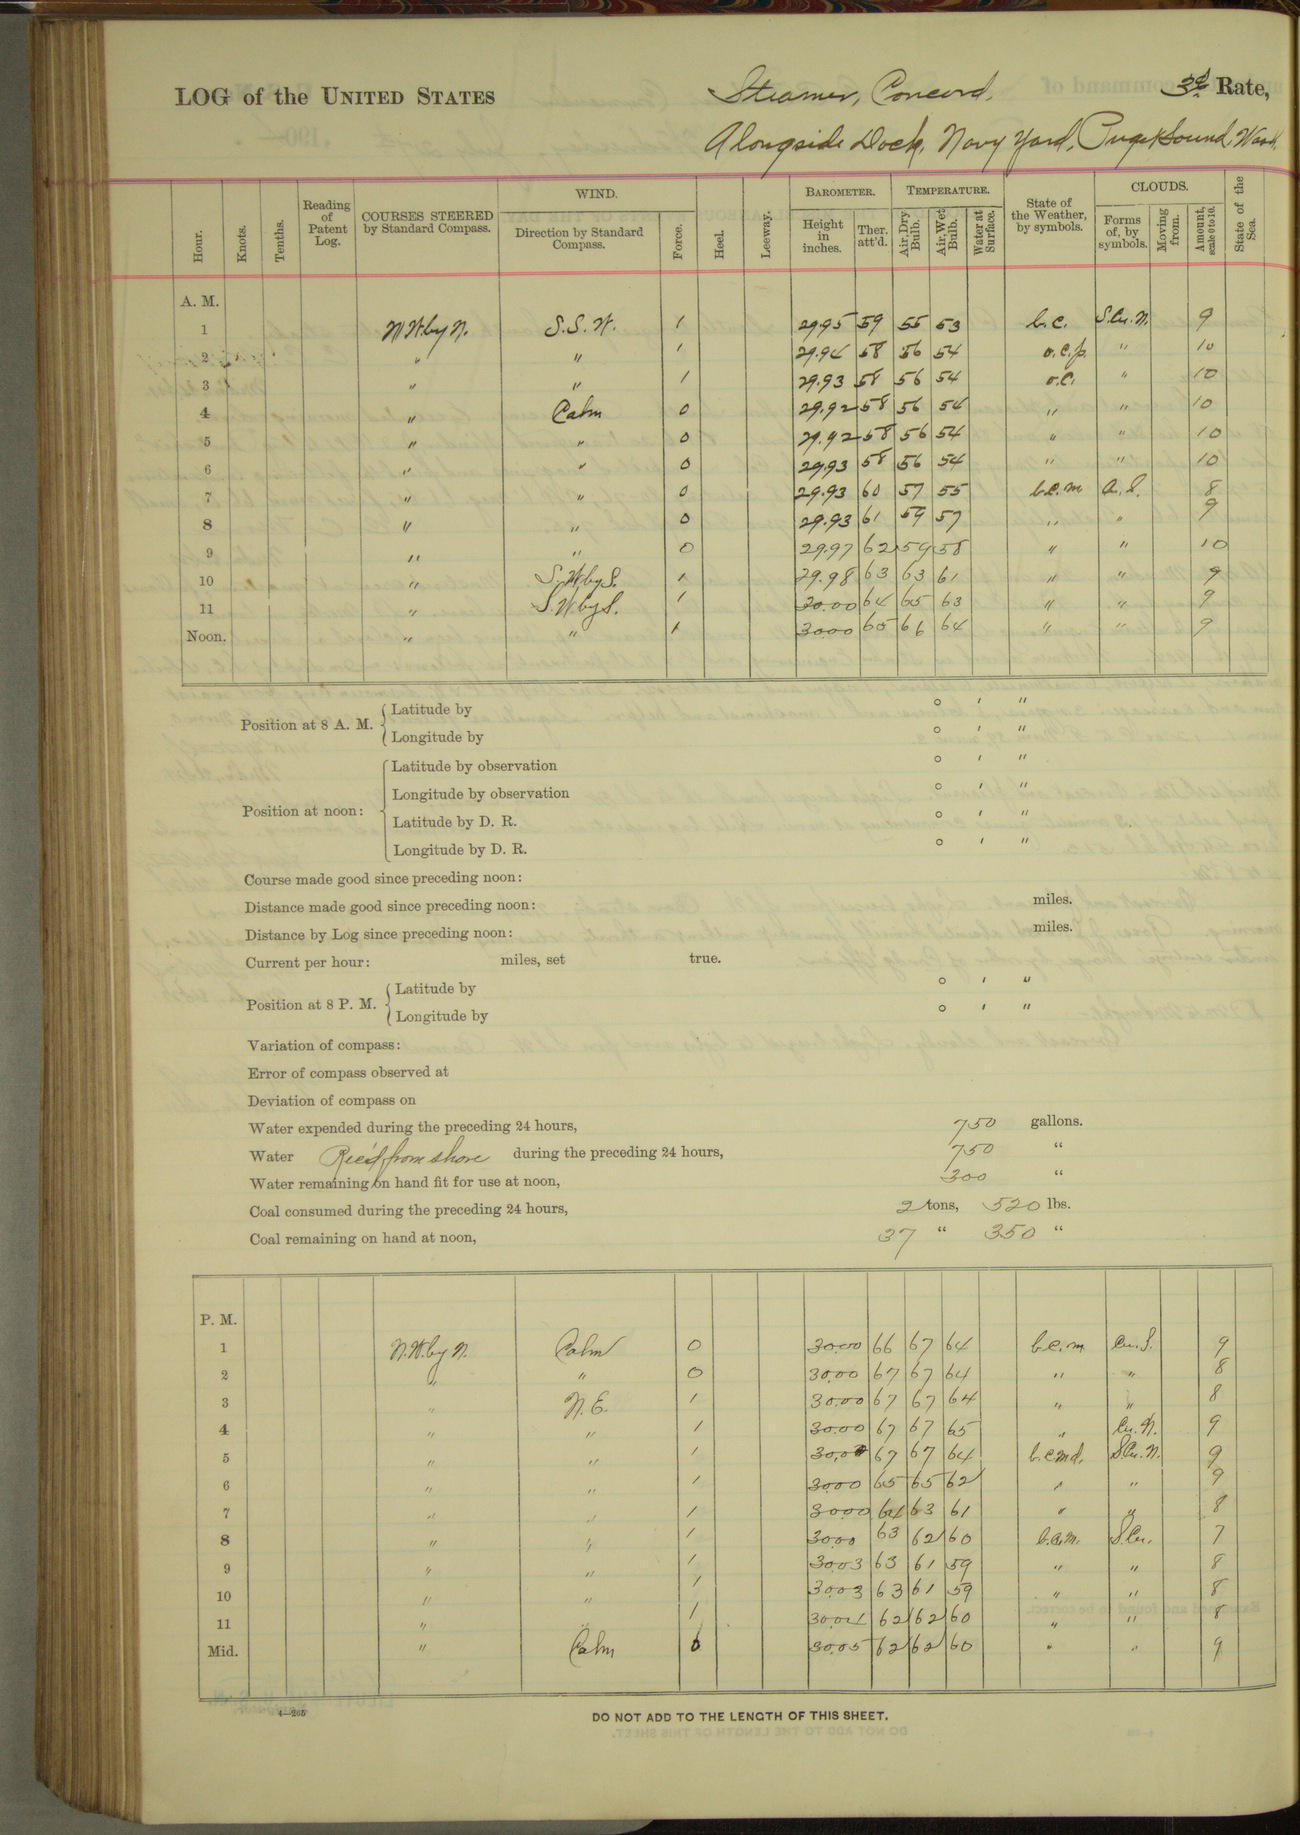 LOG of the UNITED STATES Steamer, Concord, 3d Rate,
Alongside Dock, Navy Yard, Puget Sound, Wash.
Hour. Knots. Tenths. Reading of Patent Log. COURSES STEERED by Standard Compass. WIND. Direction by Standard Compass. Force. Heel. Leeway. BAROMETER. Height in inches. Ther. att'd. TEMPERATURE. Air, Dry Bulb. Air, Wet Bulb. Water at Surface. State of the Weather, by symbols. CLOUDS. Forms of, by symbols. Moving from. Amount, scale 0 to 10. State of the Sea.
A. M.
1 N.W. by N. S.S.W. 1 29.95 59 55 53 b.c. S.Cu.N. 9
2 " " 1 29.94 58 56 54 o.c.p. " 10
3 " " 1 29.93 58 56 54 o.c. " 10
4 " Calm 0 29.92 58 56 54 " " 10
5 " " 0 29.92 58 56 54 " " 10
6 " " 0 29.93 58 56 54 " " 10
7 " " 0 29.93 60 57 55 b.c.m a.S. 8
8 " " 0 29.93 61 59 57 " " 9
9 " " 0 29.97 62 59 58 " " 10
10 " S.W. by S. 1 29.98 63 63 61 " " 9
11 " S.W. by S. 1 30.00 64 65 63 " " 9
Noon. " " 1 30.00 65 66 64 " " 9
Position at 8 A. M. Latitude by ° ' "
Longitude by ° ' "
Position at noon: Latitude by observation ° ' "
Longitude by observation ° ' "
Latitude by D. R. ° ' "
Longitude by D. R. ° ' "
Course made good since preceding noon:
Distance made good since preceding noon: miles.
Distance by Log since preceding noon: miles.
Current per hour: miles, set true.
Position at 8 P. M. Latitude by ° ' "
Longitude by ° ' "
Variation of compass:
Error of compass observed at
Deviation of compass on
Water expended during the preceding 24 hours, 750 gallons.
Water Rec'd from shore during the preceding 24 hours, 750 "
Water remaining on hand fit for use at noon, 300 "
Coal consumed during the preceding 24 hours, 2 tons, 520 lbs.
Coal remaining on hand at noon, 37 " 350 "
P. M.
1 N.W. by N. Calm 0 30.00 66 67 64 b.c.m Cu.S. 9
2 " " 0 30.00 67 67 64 " " 8
3 " N.E. 1 30.00 67 67 64 " " 8
4 " " 1 30.00 67 67 65 " Cu.N. 9
5 " " 1 30.00 67 67 64 b.c.m.d. S.Cu.N. 9
6 " " 1 30.00 65 65 62 " " 9
7 " " 1 30.00 64 63 61 " " 8
8 " " 1 30.00 63 62 60 b.c.m. S.Cu. 7
9 " " 1 30.03 63 61 59 " " 8
10 " " 1 30.03 63 61 59 " " 8
11 " " 1 30.04 62 62 60 " " 8
Mid. " Calm 0 30.05 62 62 60 " " 9
4—265
DO NOT ADD TO THE LENGTH OF THIS SHEET.